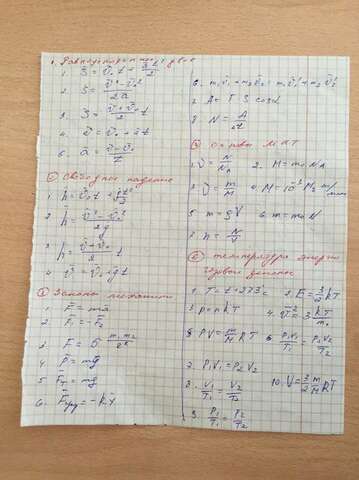 Равноускоренное движ
1. S = v₀t + at²/2
2. S = v² - v₀²/2a
3. S = v + v₀/2 t
4. v = v₀ + at
5. a = v - v₀/t
Свободное падение
1. h = v₀t + gt²/2
2. h = v² - v₀²/2g
3. h = v + v₀/2 t
4. v = v₀ + gt
Законы механики
1. F = ma
2. F₁ = -F₂
3. F = G m₁m₂/r²
4. P = mg
5. Fт = mg
6. Fупр = -kx
6. m₁v₁ + m₂v₂ = m₁v₁' + m₂v₂'
7. A = F S cosα
8. N = A/t
Основы МКТ
1. ν = N/Nₐ 2. M = m₀Nₐ
3. ν = m/M 4. M = 10⁻³ Mᵣ
5. m = ρV 6. m = m₀N
7. n = N/V
температура энергия
газовые законы
1. T = t + 273°C 2. E = 3/2 kT
3. p = nkT 4. v² = 3 kT/m₀
5. PV = m/M RT 6. P₁V₁/T₁ = P₂V₂/T₂
7. P₁V₁ = P₂V₂
8. V₁/T₁ = V₂/T₂ 10. U = 3/2 m/M RT
9. P₁/T₁ = P₂/T₂